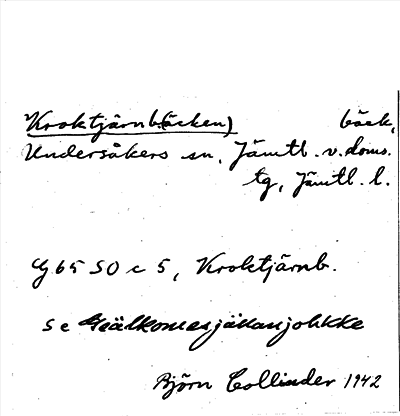 Kroktjärnb(äcken) bäck,
Undersåkers sn, Jämtl. v. doms.
tg, Jämtl. l.
G 65 SO c 5, Kroktjärnb.
se
Björn Collinder 1942